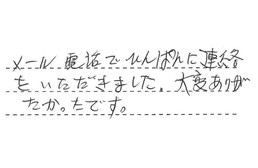 メール 電話でひんぱんに連絡
をいただきました。大変ありが
たかったです。